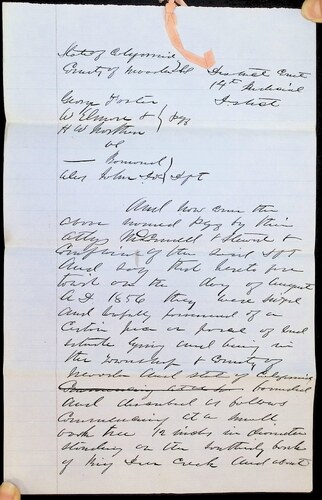 State of California
County of Nevada } ss District Court
14th Judicial
District
George Foster
W Elmore &
H W Northen } Plff
vs
— Bomond
Alias John Doe } Dft
And now come the
above named Plff by their
attys McConnell & Steward &
complains of the said Dft
And say that heretofore
to wit on the day of August
A.D. 1856 they were seized
and lawfully possessed of a
certain piece or parcel of real
estate lying and being in
the Township & County of
Nevada and state of California
bounded
and described as follows
commencing at a small
oak tree 12 inches in diameter
standing on the southerly bank
of Deer Creek and about